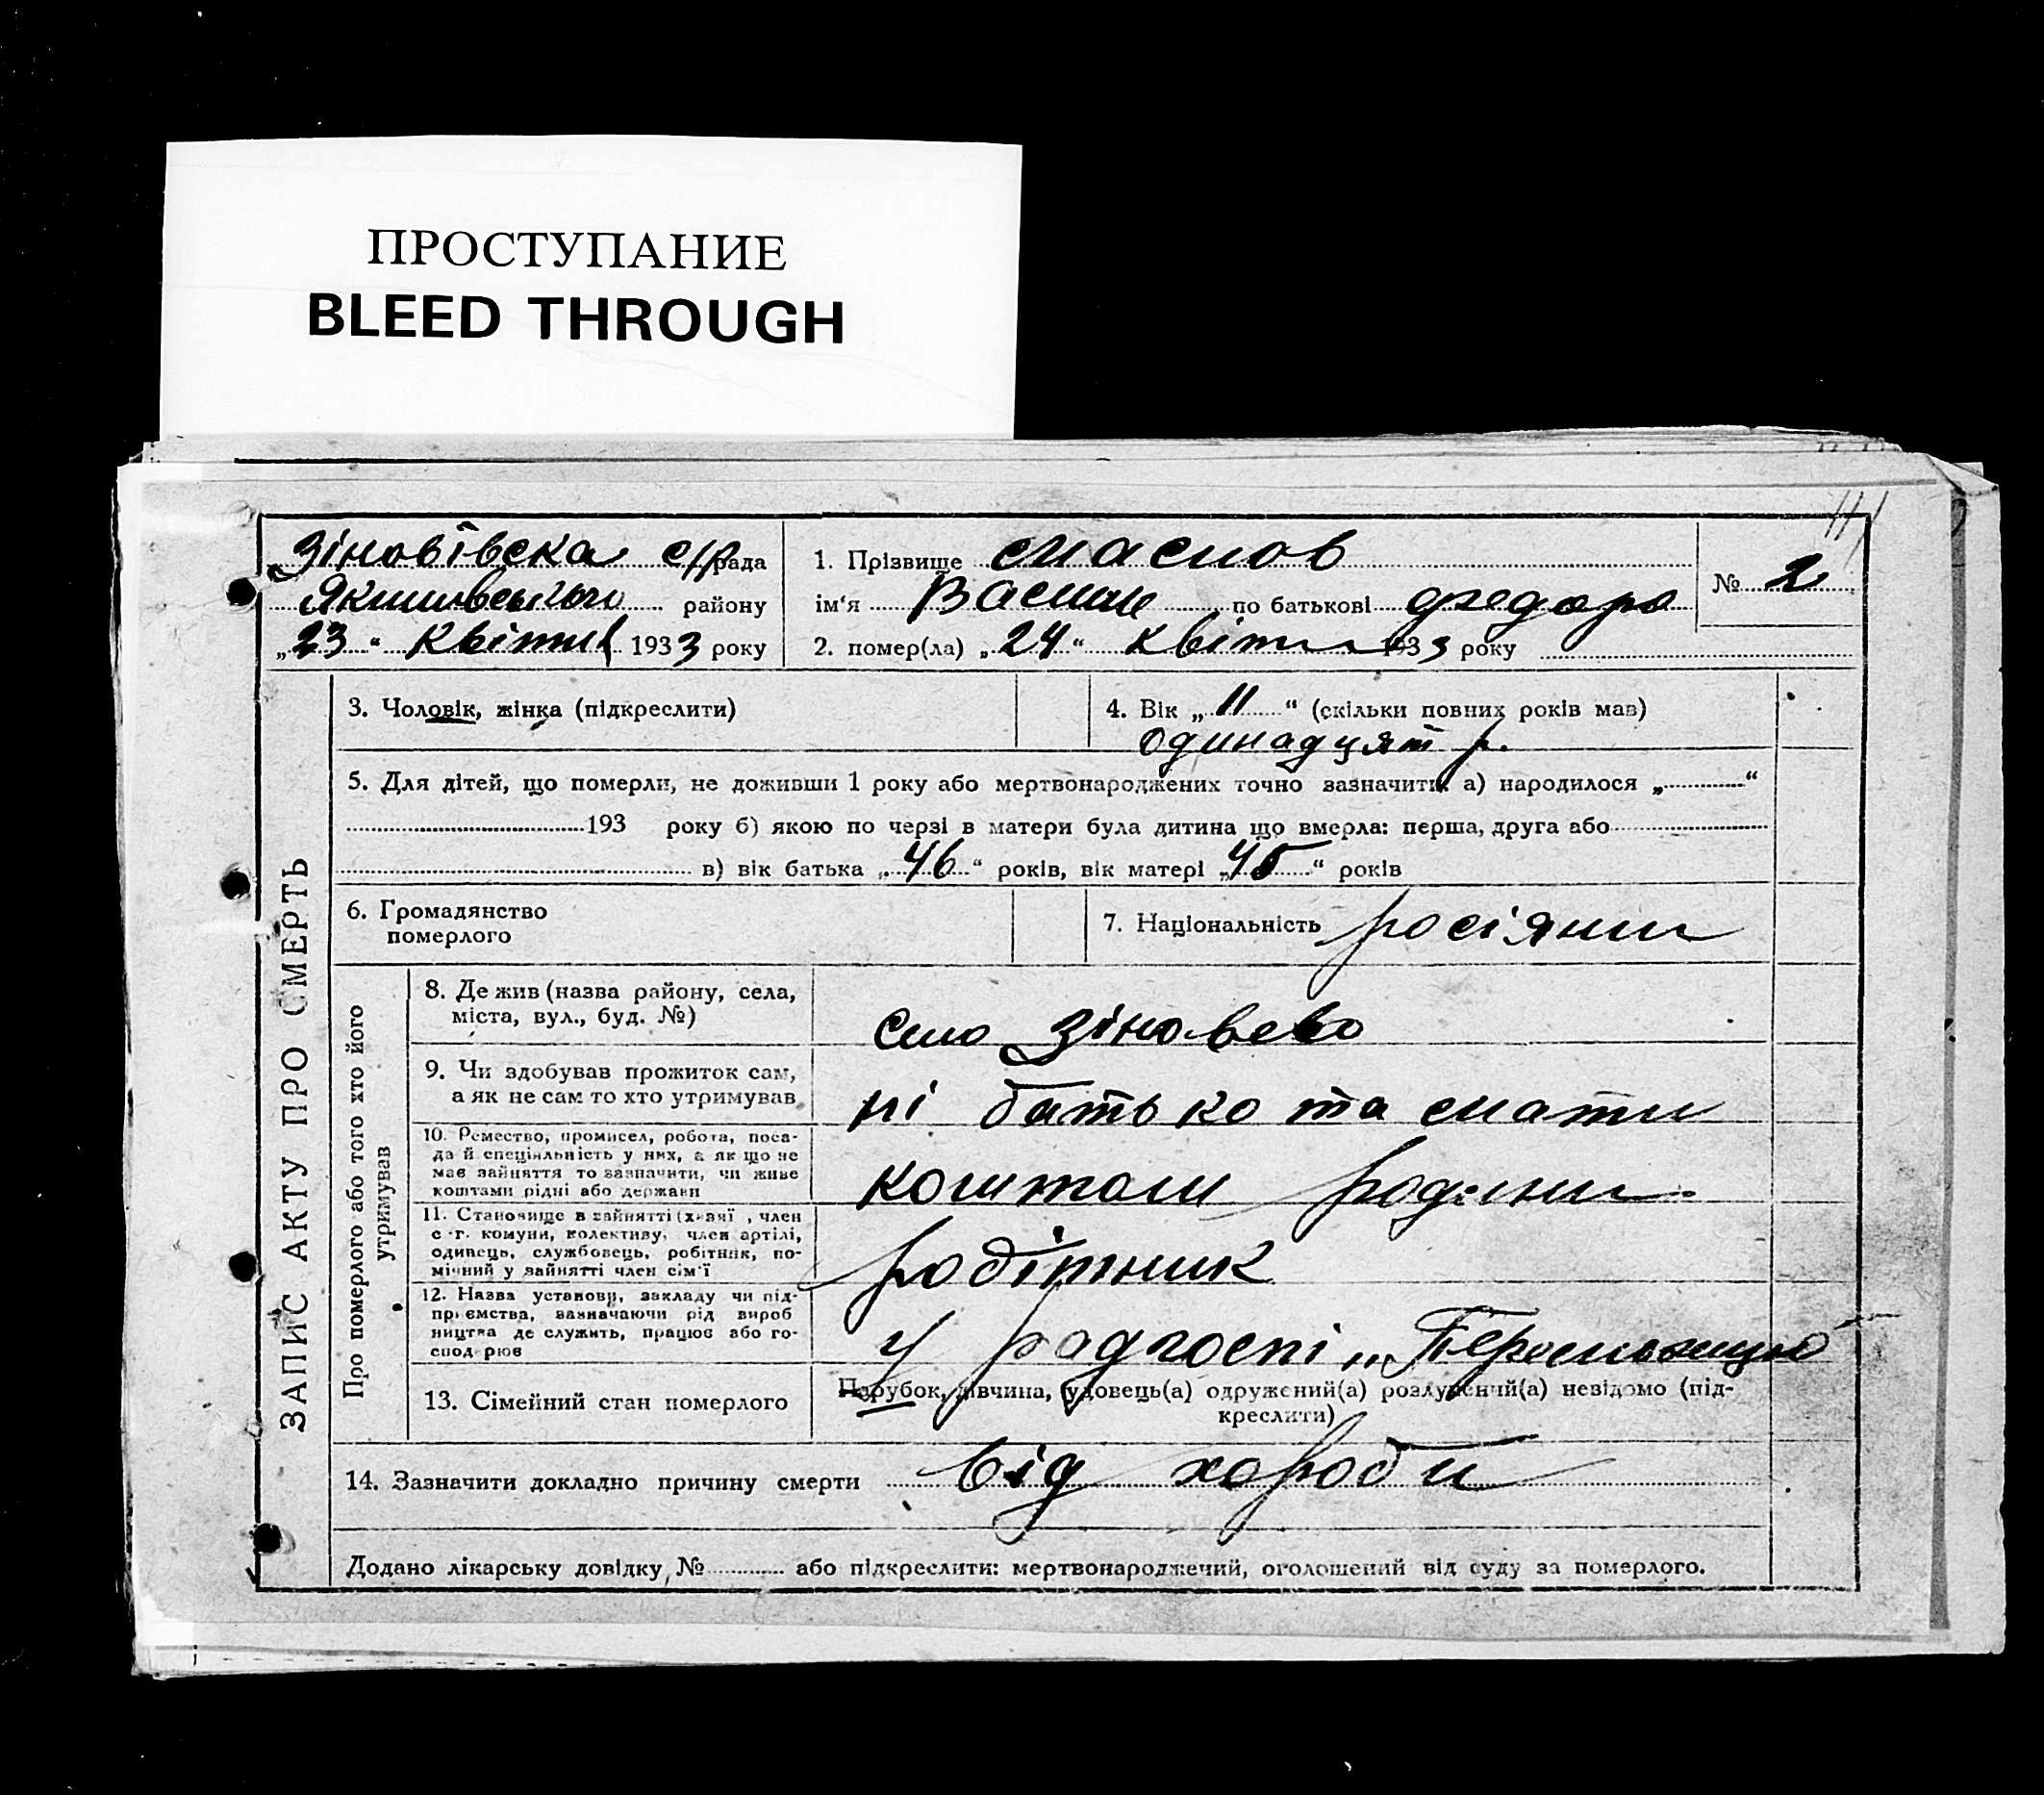 ПРОСТУПАНИЕ
BLEED THROUGH
111
Зіновівска с/рада
Якимовського району
„23“ квітня 1933 року
1. Прізвище Маслов
ім‘я Василь по батькові Федоро
№ 2
2. помер(ла) „24“ квітн 1933 року
ЗАПИС АКТУ ПРО СМЕРТЬ
3. Чоловік, жінка (підкреслити)
4. Вік „11“ (скільки повних років мав)
одинадцят р.
5. Для дітей, що померли, не доживши 1 року або мертвонароджених точно зазначити: а) народилося „ “
193 року б) якою по черзі в матери була дитина що вмерла: перша, друга або
в) вік батька „46“ років, вік матері „45“ років
6. Громадянство
померлого
7. Національність росіянин
Про померлого або того хто його
утримував
8. Де жив (назва району, села,
міста, вул., буд. №)
село Зіновево
9. Чи здобував прожиток сам,
а як не сам то хто утримував
ні батько та мати
10. Ремество, промисел, робота, поса-
да й спеціяльність у них, а як що не
має зайняття то зазначити, чи живе
коштами рідні або держави
коштами родини.
11. Становище в зайнятті (хазяї, член
с.-г. комуни, колективу, член артілі,
одинець, службовець, робітник, по-
мічний у зайнятті член сім‘ї
робітник
12. Назва установи, закладу чи під-
приємства, зазначаючи рід вироб
ництва де служить, працює або го-
сподарює
у радгоспі „
13. Сімейний стан померлого
Парубок, дівчина, удовець(а) одружений(а) розлучений(а) невідомо (під-
креслити)
14. Зазначити докладно причину смерти від хороби
Додано лікарську довідку № або підкреслити: мертвонароджений, оголошений від суду за померлого.